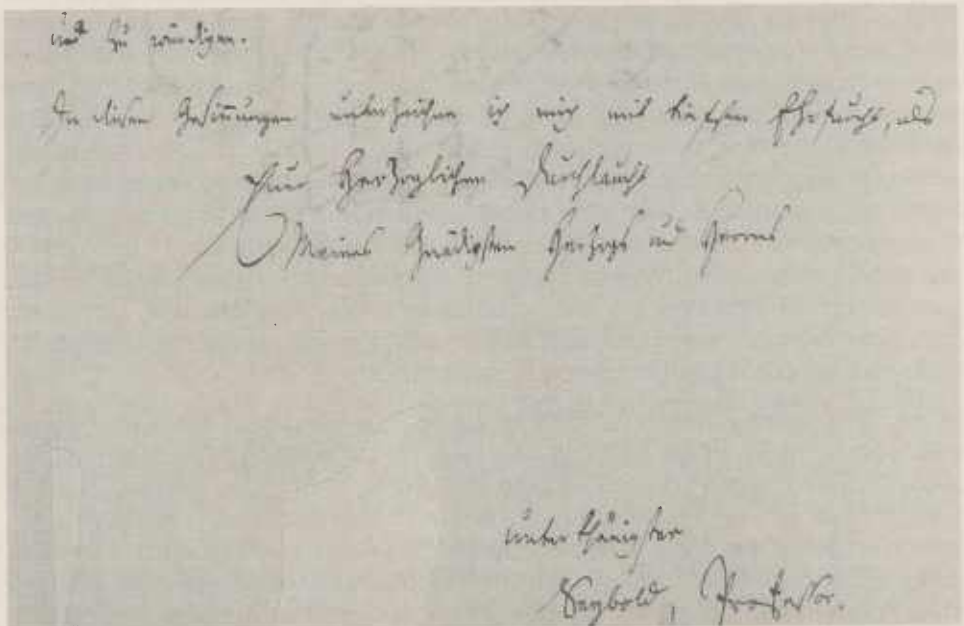 und zu würdigen.
In diesen Gesinnungen unterzeichne ich mich mit tiefster Ehrfurcht, als
Euer Herzoglichen Durchlaucht
Meines Gnädigsten Herzogs und Herrns
unterthänigster
Seybold, Professor.